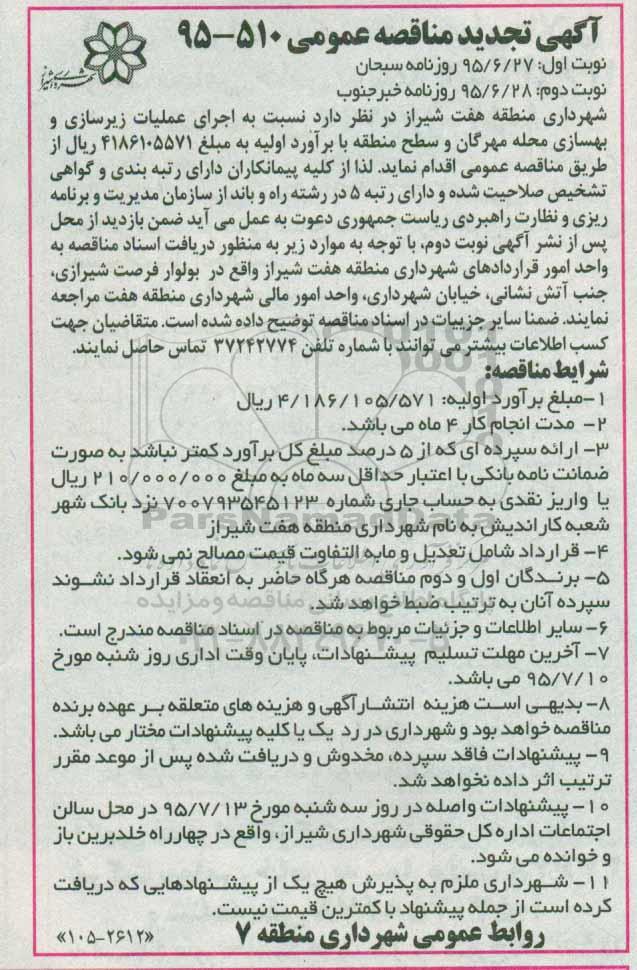 آگهی تجدید مناقصه عمومی ۵۱۰-۹۵
نوبت اول: ۹۵/۶/۲۷ روزنامه سبحان
نوبت دوم: ۹۵/۶/۲۸ روزنامه خبرجنوب
شهرداری منطقه هفت شیراز در نظر دارد نسبت به اجرای عملیات زیرسازی و
بهسازی محله مهرگان و سطح منطقه با برآورد اولیه به مبلغ ۴۱۸۶۱۰۵۵۷۱ ریال از
طریق مناقصه عمومی اقدام نماید. لذا از کلیه پیمانکاران دارای رتبه بندی و گواهی
تشخیص صلاحیت شده و دارای رتبه ۵ در رشته راه و باند از سازمان مدیریت و برنامه
ریزی و نظارت راهبردی ریاست جمهوری دعوت به عمل می آید ضمن بازدید از محل
پس از نشر آگهی نوبت دوم، با توجه به موارد زیر به منظور دریافت اسناد مناقصه به
واحد امور قراردادهای شهرداری منطقه هفت شیراز واقع در بولوار فرصت شیرازی،
جنب آتش نشانی، خیابان شهرداری، واحد امور مالی شهرداری منطقه هفت مراجعه
نمایند. ضمنا سایر جزییات در اسناد مناقصه توضیح داده شده است. متقاضیان جهت
کسب اطلاعات بیشتر می توانند با شماره تلفن ۳۷۲۴۲۷۷۴ تماس حاصل نمایند.
شرایط مناقصه:
۱-مبلغ برآورد اولیه: ۴/۱۸۶/۱۰۵/۵۷۱ ریال
۲- مدت انجام کار ۴ ماه می باشد.
۳- ارائه سپرده ای که از ۵ درصد مبلغ کل برآورد کمتر نباشد به صورت
ضمانت نامه بانکی با اعتبار حداقل سه ماه به مبلغ ۲۱۰/۰۰۰/۰۰۰ ریال
یا واریز نقدی به حساب جاری شماره ۷۰۰۷۹۳۵۴۵۱۲۳ نزد بانک شهر
شعبه کاراندیش به نام شهرداری منطقه هفت شیراز
۴- قرارداد شامل تعدیل و مابه التفاوت قیمت مصالح نمی شود.
۵- برندگان اول و دوم مناقصه هرگاه حاضر به انعقاد قرارداد نشوند
سپرده آنان به ترتیب ضبط خواهد شد.
۶- سایر اطلاعات و جزئیات مربوط به مناقصه در اسناد مناقصه مندرج است.
۷- آخرین مهلت تسلیم پیشنهادات، پایان وقت اداری روز شنبه مورخ
۹۵/۷/۱۰ می باشد.
۸- بدیهی است هزینه انتشار آگهی و هزینه های متعلقه بر عهده برنده
مناقصه خواهد بود و شهرداری در رد یک یا کلیه پیشنهادات مختار می باشد.
۹- پیشنهادات فاقد سپرده، مخدوش و دریافت شده پس از موعد مقرر
ترتیب اثر داده نخواهد شد.
۱۰- پیشنهادات واصله در روز سه شنبه مورخ ۹۵/۷/۱۳ در محل سالن
اجتماعات اداره کل حقوقی شهرداری شیراز، واقع در چهارراه خلدبرین باز
و خوانده می شود.
۱۱- شهرداری ملزم به پذیرش هیچ یک از پیشنهادهایی که دریافت
کرده است از جمله پیشنهاد با کمترین قیمت نیست.
روابط عمومی شهرداری منطقه ۷
«۱۰۵-۲۶۱۲»
ParsNamadData